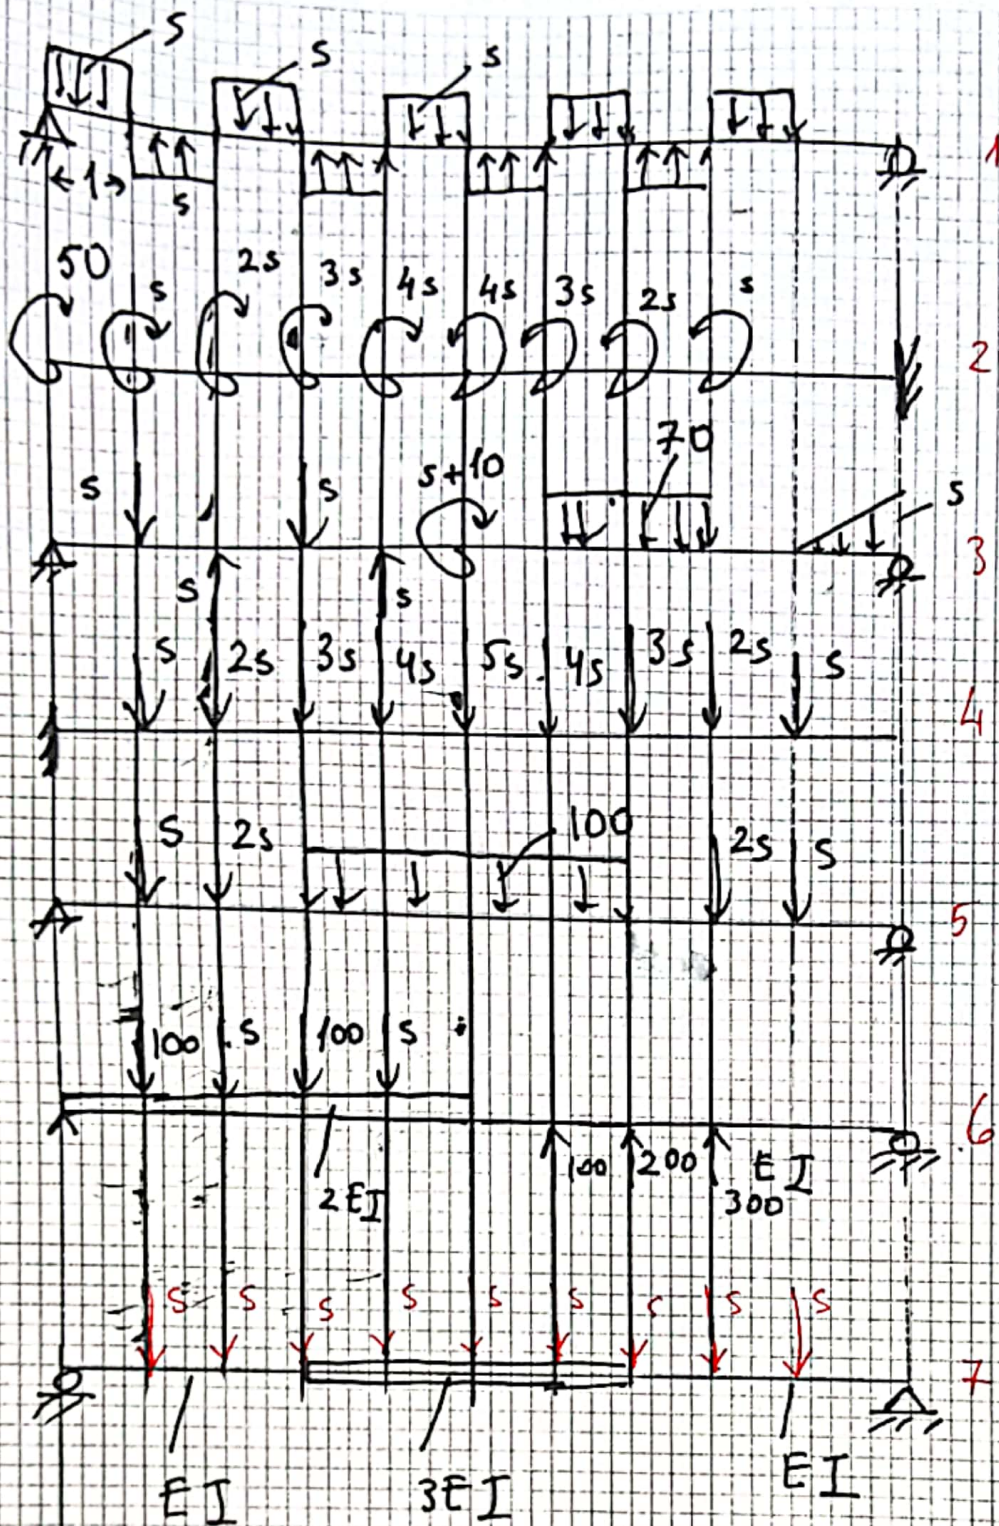 s s s
1
1 s
50 s 2s 3s 4s 4s 3s 2s s
2
70
s s s+10 s
3
s s
s 2s 3s 4s 5s 4s 3s 2s s
4
s 2s 100 2s s
5
100 s 100 s
6
100 200 EI
2EI 300
s s s s s s s s s
7
EI 3EI EI